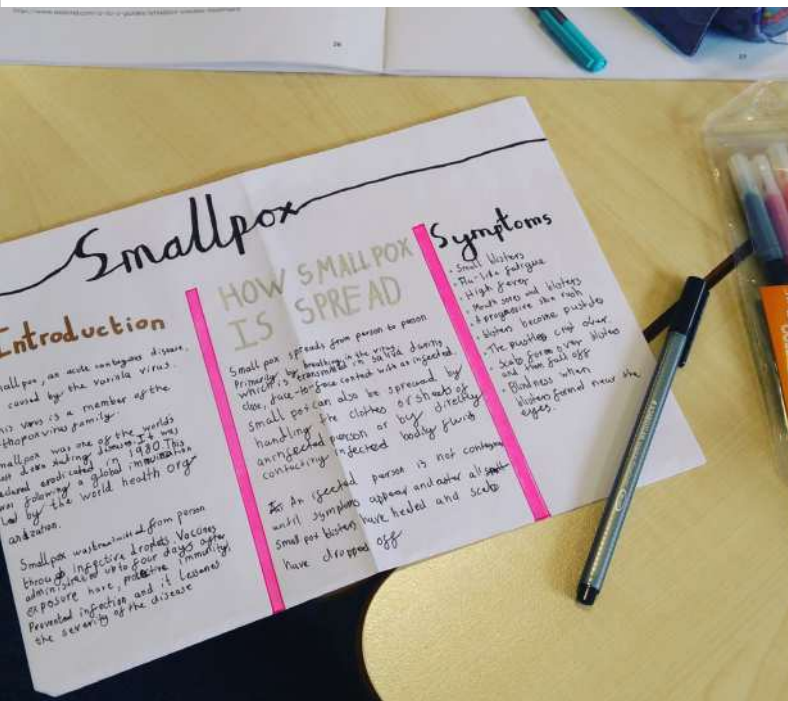 26
27
Smallpox
Introduction
mallpox, an acute contagious disease,
caused by the variola virus.
his virus is a member of the
thopoxvirus family.
mallpox was one of the world's
ost devastating diseases. It was
clared eradicated in 1980. This
was folowing a global immunisation
Led by the world health org
anization.
Smallpox was transmitted from person
through infective droplets. Vaccines
administered up to four days after
exposure have, protective immunity,
Prevented infection and it lessones
the severity of the disease
HOW SMALLPOX
IS SPREAD
Small pox spreads from person to person
Primarily by breathing in the virus,
which is transmitted in saliva during
close, face-to-face contact with an ingected.
small pox can also be spreaed by
handling the clothes or sheets of
an infected person or by directly
contacting infected bodily fluids
An ifected person is not contagious
until symptoms appear and after all
small pox blisters have healed and scabs
have dropped off
Symptoms
• Small blisters
• Flu-like fatigue
• High fever
• Mouth sores and blisters
• A progressive skin rash
• blisters become pustules
• The pustles crust over.
• Scabs form over blisters
and then fall off
• Blindness when
blisters formed near the
eyes.